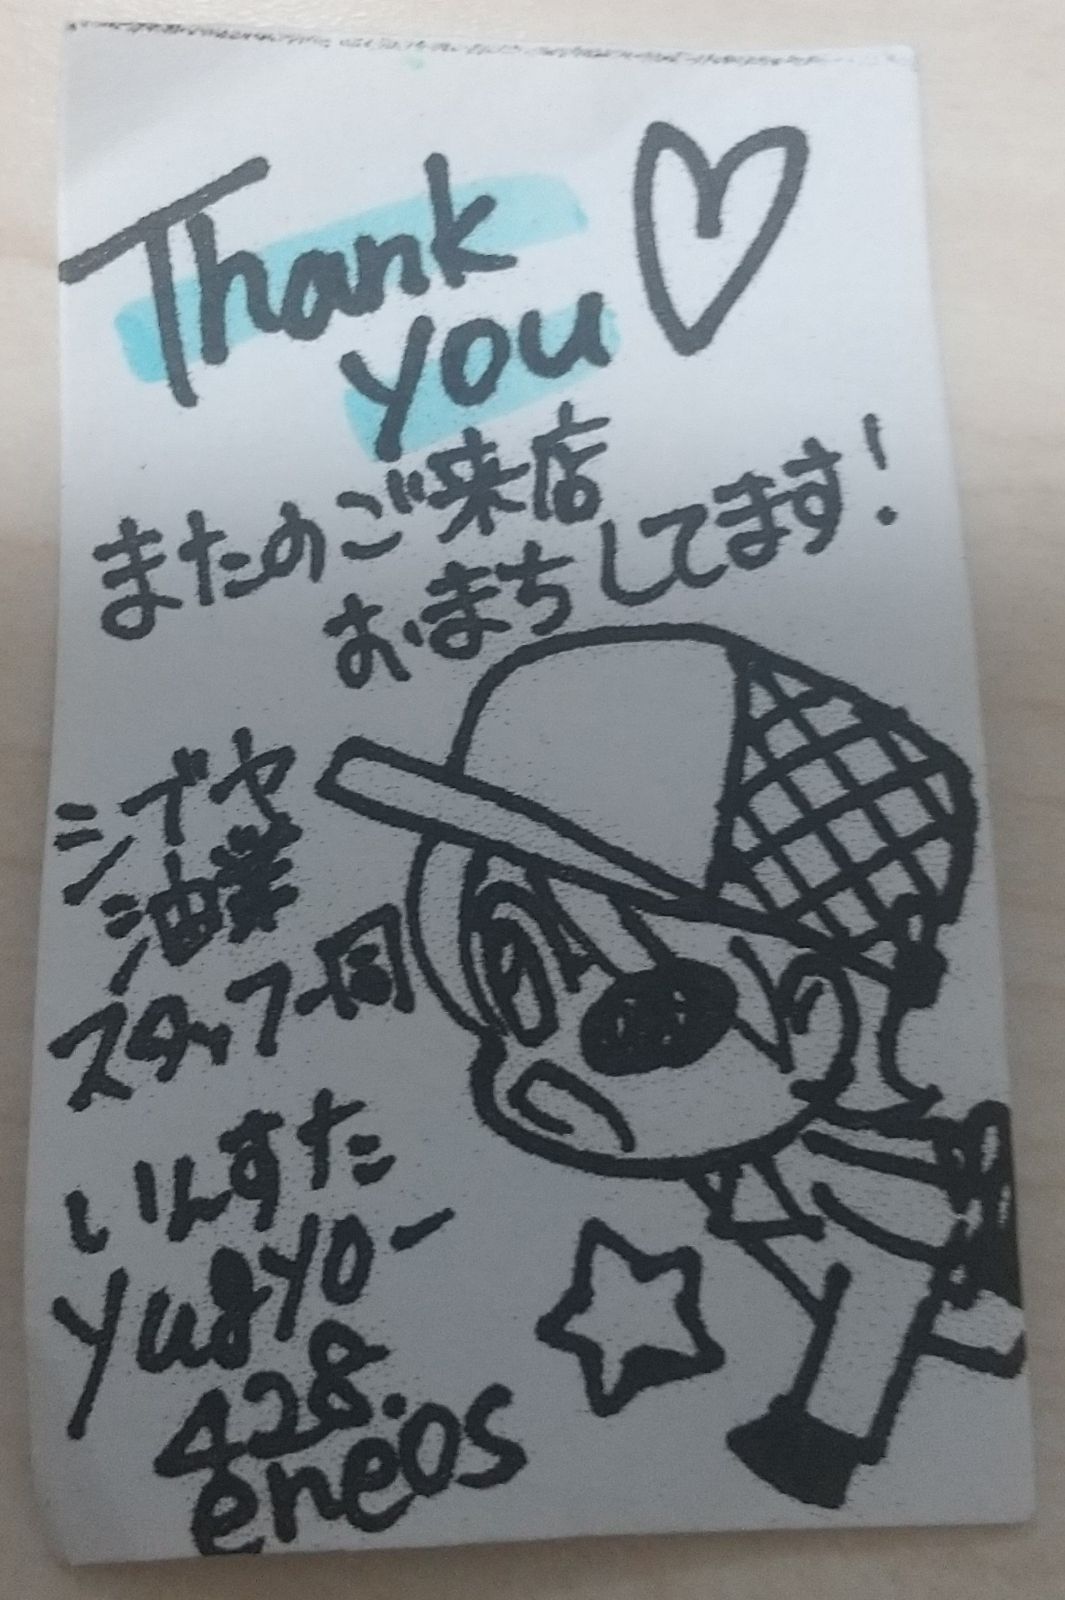 Thank
you
またのご来店
おまちしてます!
シブヤ
油業
スタッフ一同
いんすた
yugyo-
428.
eneos